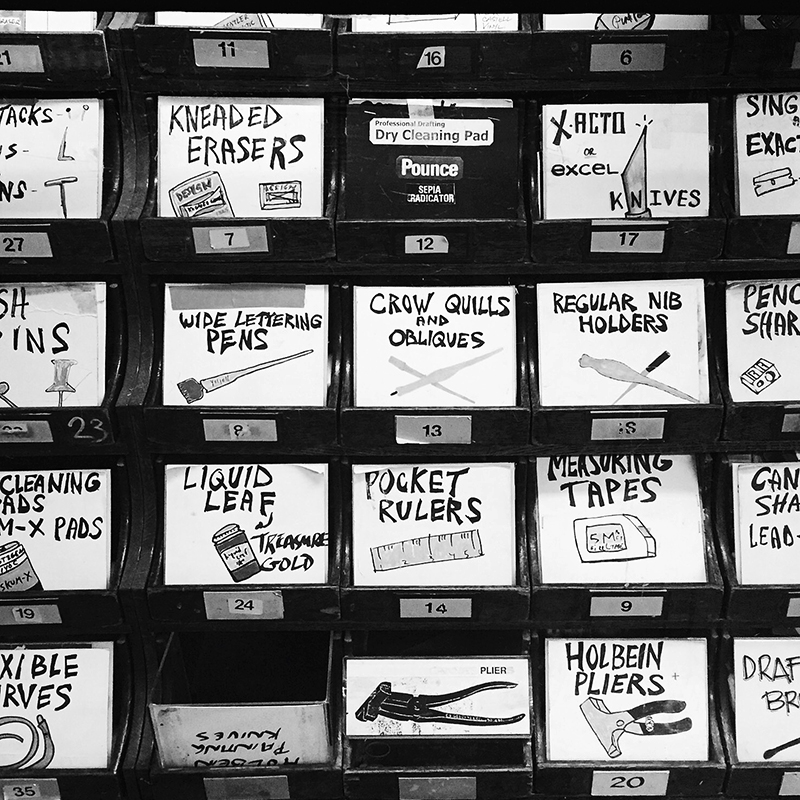 21
11
16
6
TACKS-
NS-
27
KNEADED
ERASERS
DESIGN
DESIGN
7
Professional Drafting
Dry Cleaning Pad
Pounce
SEPIA
ERADICATOR
12
X-ACTO
OR
EXCEL
KNIVES
17
SING
EXAC
SH
INS
23
WIDE LETTERING
PENS
8
CROW QUILLS
AND
OBLIQUES
13
REGULAR NIB
HOLDERS
18
PENC
SHAR
CLEANING
ADS
M-X PADS
SKUM-X
19
LIQUID
LEAF
TREASURE
GOLD
24
POCKET
RULERS
14
MEASURING
TAPES
5M
9
CAN
SHA
LEAD-
XIBLE
RVES
35
HOLBEIN
PAINTING
KNIVES
PLIER
HOLBEIN
PLIERS
20
DRAF
BR